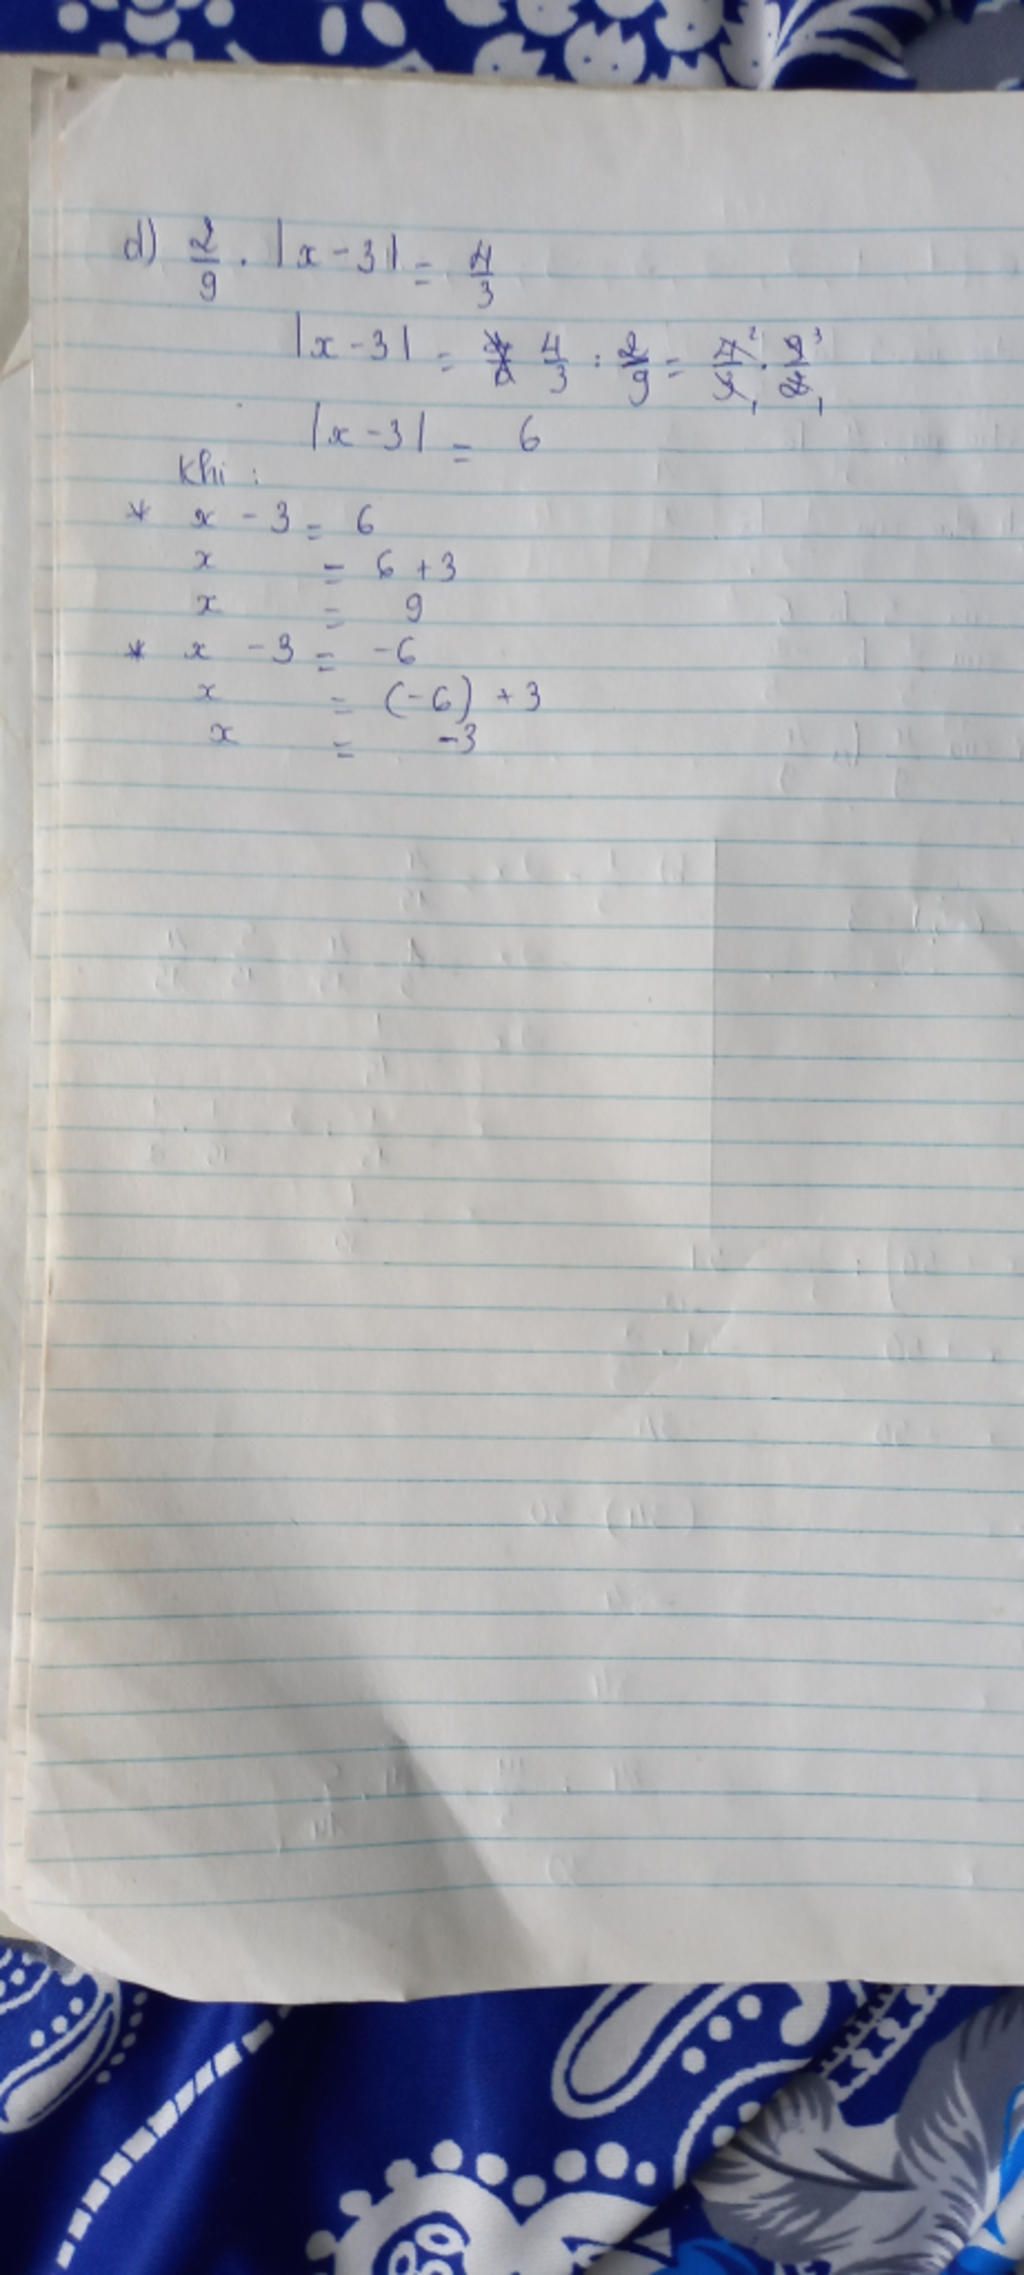 d) 2/9 . |x - 3| = 4/3
|x - 3| = 4/3 : 2/9 = 4²/3₁ . 9³/2₁
|x - 3| = 6
Khi :
* x - 3 = 6
x = 6 + 3
x = 9
* x - 3 = -6
x = (-6) + 3
x = -3